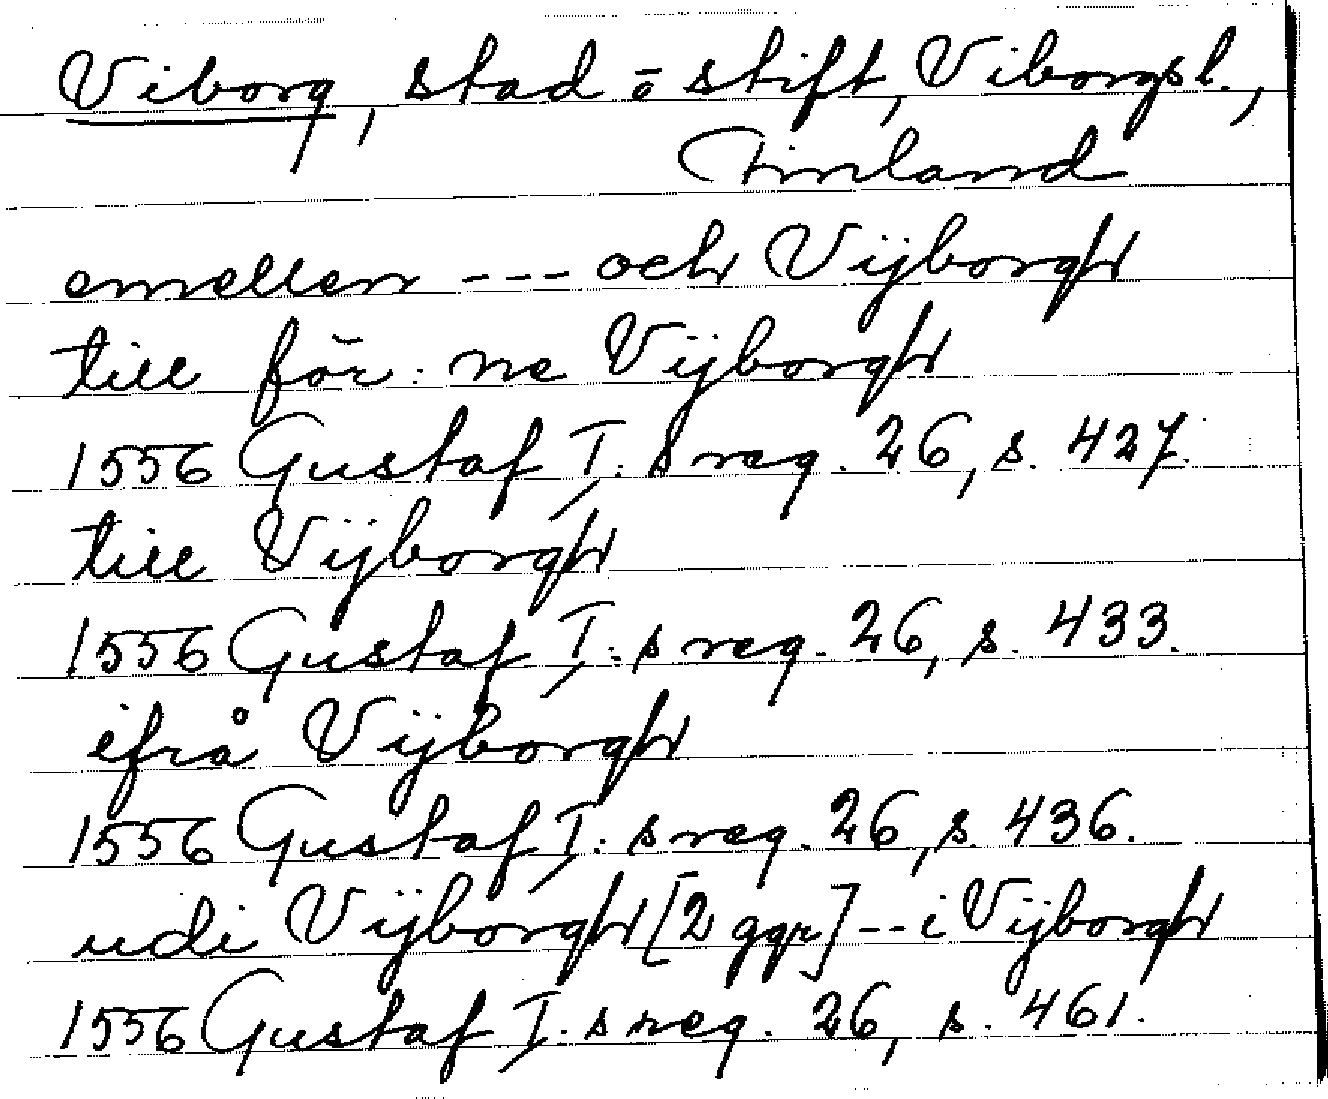 Viborg, stad o stift, Viborgsl.,
Finland
emellen --- och Vijborgh
till för: ne Vijborgh
1556 Gustaf I:s reg. 26, s. 427.
till Vijborgh
1556 Gustaf I:s reg. 26, s. 433.
ifrå Vijborgh
1556 Gustaf I:s reg. 26, s. 436.
udi Vijborgh [2 ggr] -- i Vijborgh
1556 Gustaf I:s reg. 26, s. 461.